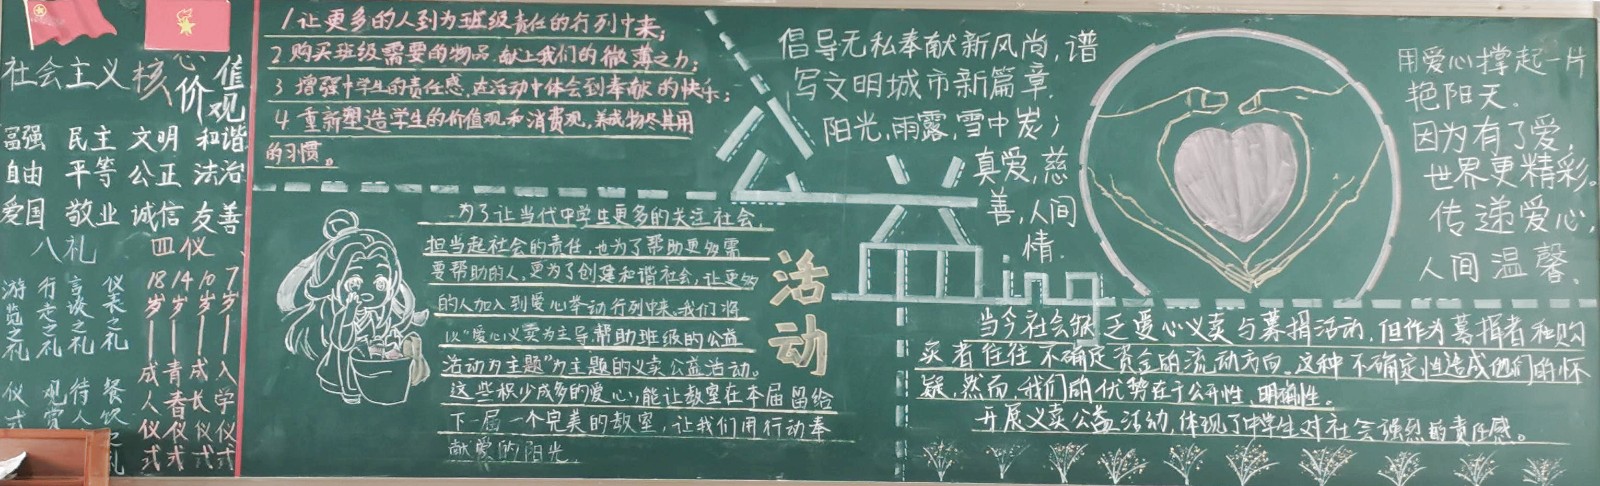 社会主义核心价值观
富强 民主 文明 和谐
自由 平等 公正 法治
爱国 敬业 诚信 友善
八礼 四仪
仪表之礼
言谈之礼
行走之礼
游览之礼
餐饮之礼
待人
观赏
仪式
7岁——入学仪式
10岁——成长仪式
14岁——青春仪式
18岁——成人仪式
1 让更多的人到为班级责任的行列中来;
2 购买班级需要的物品,献上我们的微薄之力;
3 增强中学生的责任感,在活动中体会到奉献的快乐;
4 重新塑造学生的价值观和消费观,养成物尽其用
的习惯。
为了让当代中学生更多的关注社会,
担当起社会的责任,也为了帮助更多需
要帮助的人,更为了创建和谐社会,让更多
的人加入到爱心举动行列中来,我们将
以“爱心义卖为主导,帮助班级的公益
活动为主题”为主题的义卖公益活动。
这些积少成多的爱心,能让教室在本届留给
下一届一个完美的教室,让我们用行动奉
献爱的阳光。
活动
ing
倡导无私奉献新风尚,谱
写文明城市新篇章.
阳光,雨露,雪中炭;
真爱,慈
善,人间
情.
用爱心撑起一片
艳阳天。
因为有了爱,
世界更精彩。
传递爱心,
人间温馨.
当今社会缺乏爱心义卖与募捐活动,但作为募捐者和购
买者往往不确定资金的流动方向。这种不确定性造成他们的怀
疑,然而,我们的优势在于公开性,明确性。
开展义卖公益活动,体现了中学生对社会强烈的责任感。